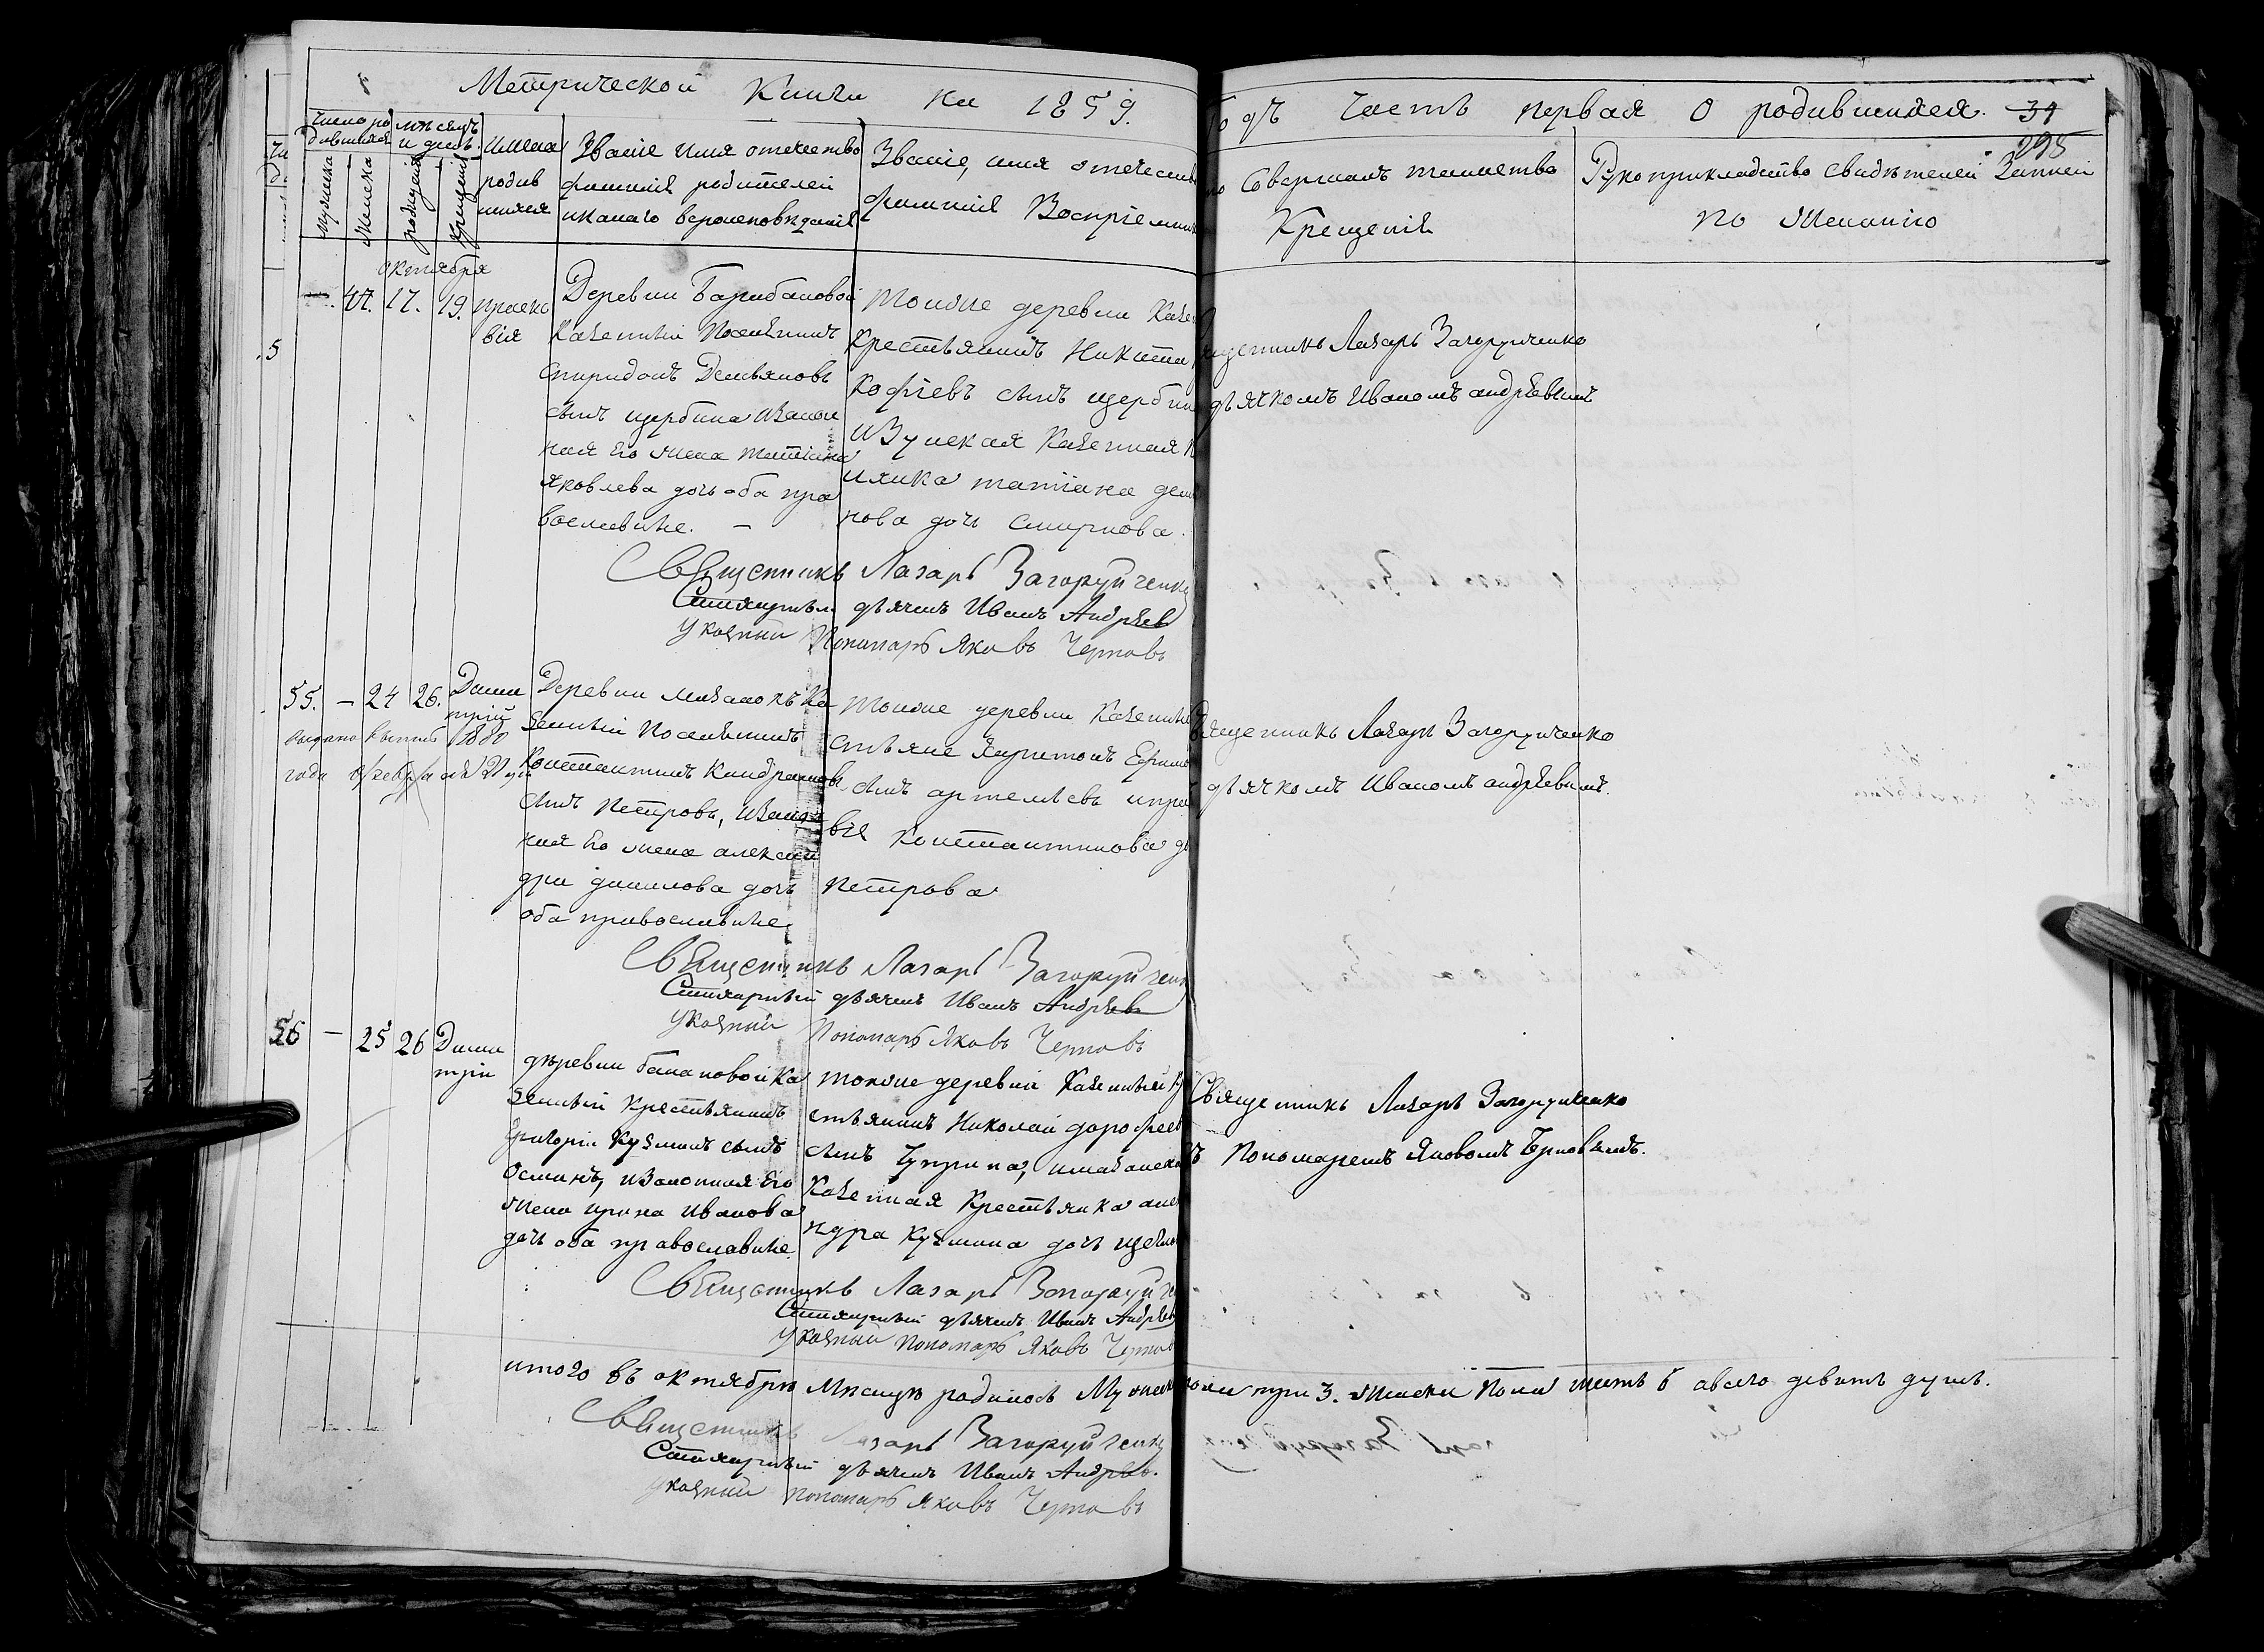 Метрической Книги на 1859.
Годъ Часть первая О родившихся. 34
295
Число ро
дившихся
Мѣсяцъ
и день
мужеска
женска
рожденія
крещенія
Имена
родив
шихся
Званіе имя отчество
фамилія родителей
и какого вѣроисповѣданія
Званіе, имя отчество
фамилія Воспріемник
Совершалъ таинство
Крещенія
Рукоприкладство свидѣтелей Записи
по Желанію
октября
47. 17. 19. Праско
вія
Деревни Барабановой
Казенный Поселянинъ
Спиридонъ Демьяновъ
сынъ щербина Изакон
ная Его жена татіана
Яковлева дочь оба пра
вославные. —
Тойже деревни Казен
Крестьянинъ Никита
кофіевъ сынъ щербин
Казенная
татіана дем
нова дочь Смирнова.
Священникъ Лазарь Загоруйченко
дьячкомъ Иваномъ андрѣевымъ
Священникъ Лазарь Загоруйченко
Стихарный дьячекъ Иванъ Андрѣев
Указный Пономарь Яковъ Черновъ
55. — 24 26. Дими
трій
выдано 1880
года февраля 21
Деревни Мазанокъ Ка
зенный Поселянинъ
Константинъ Кондратовъ
сынъ Петровъ, Изакон
ная Его жена алексан
дра данилова дочь
оба православные,
Тойже деревни Казенные
стьяне Харитонъ
сынъ артемьевъ
вія Константинова
Петрова
Священникъ Лазарь Загоруйченко
дьячкомъ Иваномъ андрѣевымъ.
Священникъ Лазарь Загоруйчен
Стихарный дьячекъ Иванъ Андрѣев
Указный Пономарь Яковъ Черновъ
56 — 25 26 Дими
трій
дѣревни бановой Ка
зенный Крестьянинъ
Григорій Кузминъ сынъ
Осминъ, изаконная Его
жена Ирина Иванова
дочь оба православные.
тойже деревни Казенный К
стьянинъ Николай дорофеев
сынъ Чуприна,
Казенная Крестьянка алек
ндра Кузмина дочь
Священникъ Лазарь Загоруйченко
Пономаремъ Яковомъ Черновымъ.
Священникъ Лазарь Загоруйче
Стихарный дьячекъ Иванъ Андрѣев
Указный Пономарь Яковъ Чернов
итого въ октябрѣ Мѣсяцѣ родилось Мужеск пола три 3. Женска пола шесть 6 авсего девять душъ.
Священникъ Лазарь Загоруйченко
Стихарный дьячекъ Иванъ Андрѣев.
указный пономарь Яковъ Черновъ